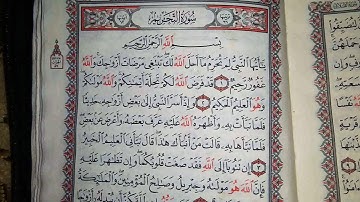 سُورَةُ التَّحْرِيمِ
بِسْمِ اللَّهِ الرَّحْمَٰنِ الرَّحِيمِ
يَا أَيُّهَا النَّبِيُّ لِمَ تُحَرِّمُ مَا أَحَلَّ اللَّهُ لَكَ تَبْتَغِي مَرْضَاتَ أَزْوَاجِكَ وَاللَّهُ
غَفُورٌ رَّحِيمٌ ١ قَدْ فَرَضَ اللَّهُ لَكُمْ تَحِلَّةَ أَيْمَانِكُمْ وَاللَّهُ مَوْلَاكُمْ
وَهُوَ الْعَلِيمُ الْحَكِيمُ ٢ وَإِذْ أَسَرَّ النَّبِيُّ إِلَىٰ بَعْضِ أَزْوَاجِهِ حَدِيثًا
فَلَمَّا نَبَّأَتْ بِهِ وَأَظْهَرَهُ اللَّهُ عَلَيْهِ عَرَّفَ بَعْضَهُ وَأَعْرَضَ عَن بَعْضٍ
فَلَمَّا نَبَّأَهَا بِهِ قَالَتْ مَنْ أَنبَأَكَ هَٰذَا قَالَ نَبَّأَنِيَ الْعَلِيمُ الْخَبِيرُ
٣ إِن تَتُوبَا إِلَى اللَّهِ فَقَدْ صَغَتْ قُلُوبُكُمَا وَإِن تَظَاهَرَا عَلَيْهِ
فَإِنَّ اللَّهَ هُوَ مَوْلَاهُ وَجِبْرِيلُ وَصَالِحُ الْمُؤْمِنِينَ وَالْمَلَائِكَةُ